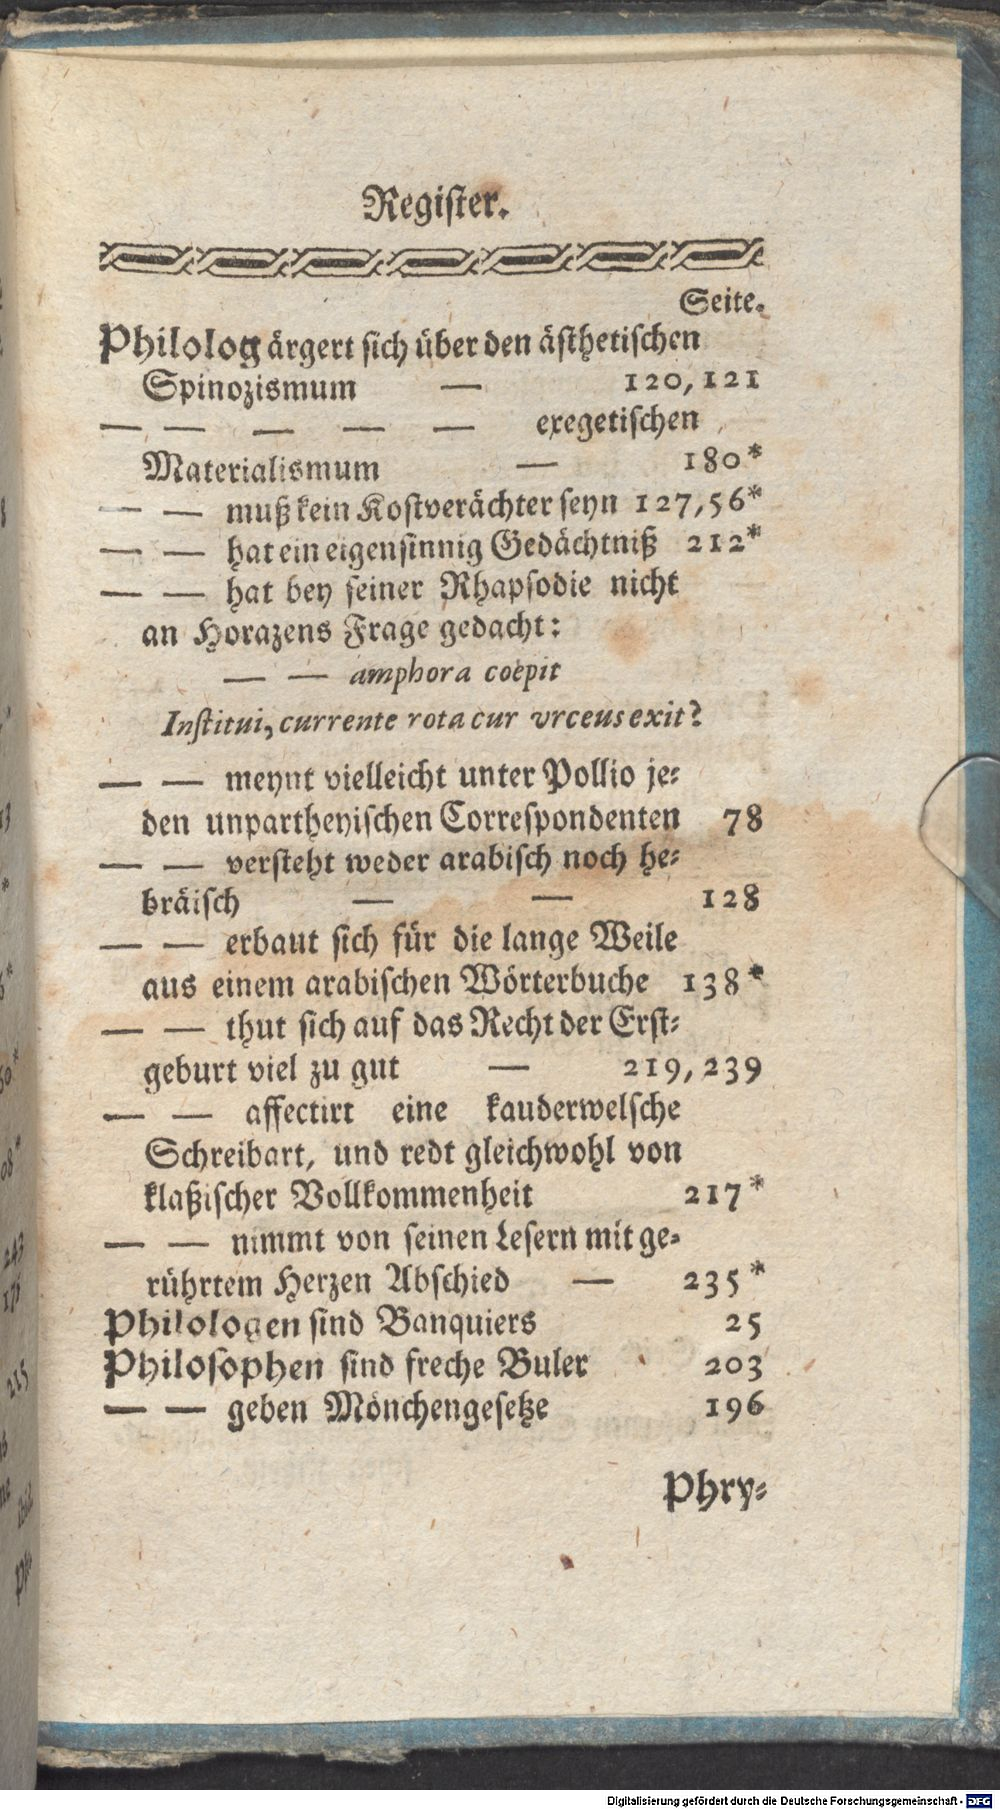 Register.
Seite.
Philolog ärgert sich über den ästhetischen
Spinozismum — 120, 121
— — — — — exegetischen
Materialismum — 180*
— — muß kein Kostverächter seyn 127, 56*
— — hat ein eigensinnig Gedächtniß 212*
— — hat bey seiner Rhapsodie nicht
an Horazens Frage gedacht:
— — amphora coepit
Institui, currente rota cur vrceus exit?
— — meynt vielleicht unter Pollio je-
den unpartheyischen Correspondenten 78
— — versteht weder arabisch noch he-
bräisch — — 128
— — erbaut sich für die lange Weile
aus einem arabischen Wörterbuche 138*
— — thut sich auf das Recht der Erst-
geburt viel zu gut — 219, 239
— — affectirt eine kauderwelsche
Schreibart, und redt gleichwohl von
klaßischer Vollkommenheit 217*
— — nimmt von seinen Lesern mit ge-
rührtem Herzen Abschied — 235*
Philologen sind Banquiers 25
Philosophen sind freche Buler 203
— — geben Mönchengesetze 196
Phry-
Digitalisierung gefördert durch die Deutsche Forschungsgemeinschaft - DFG